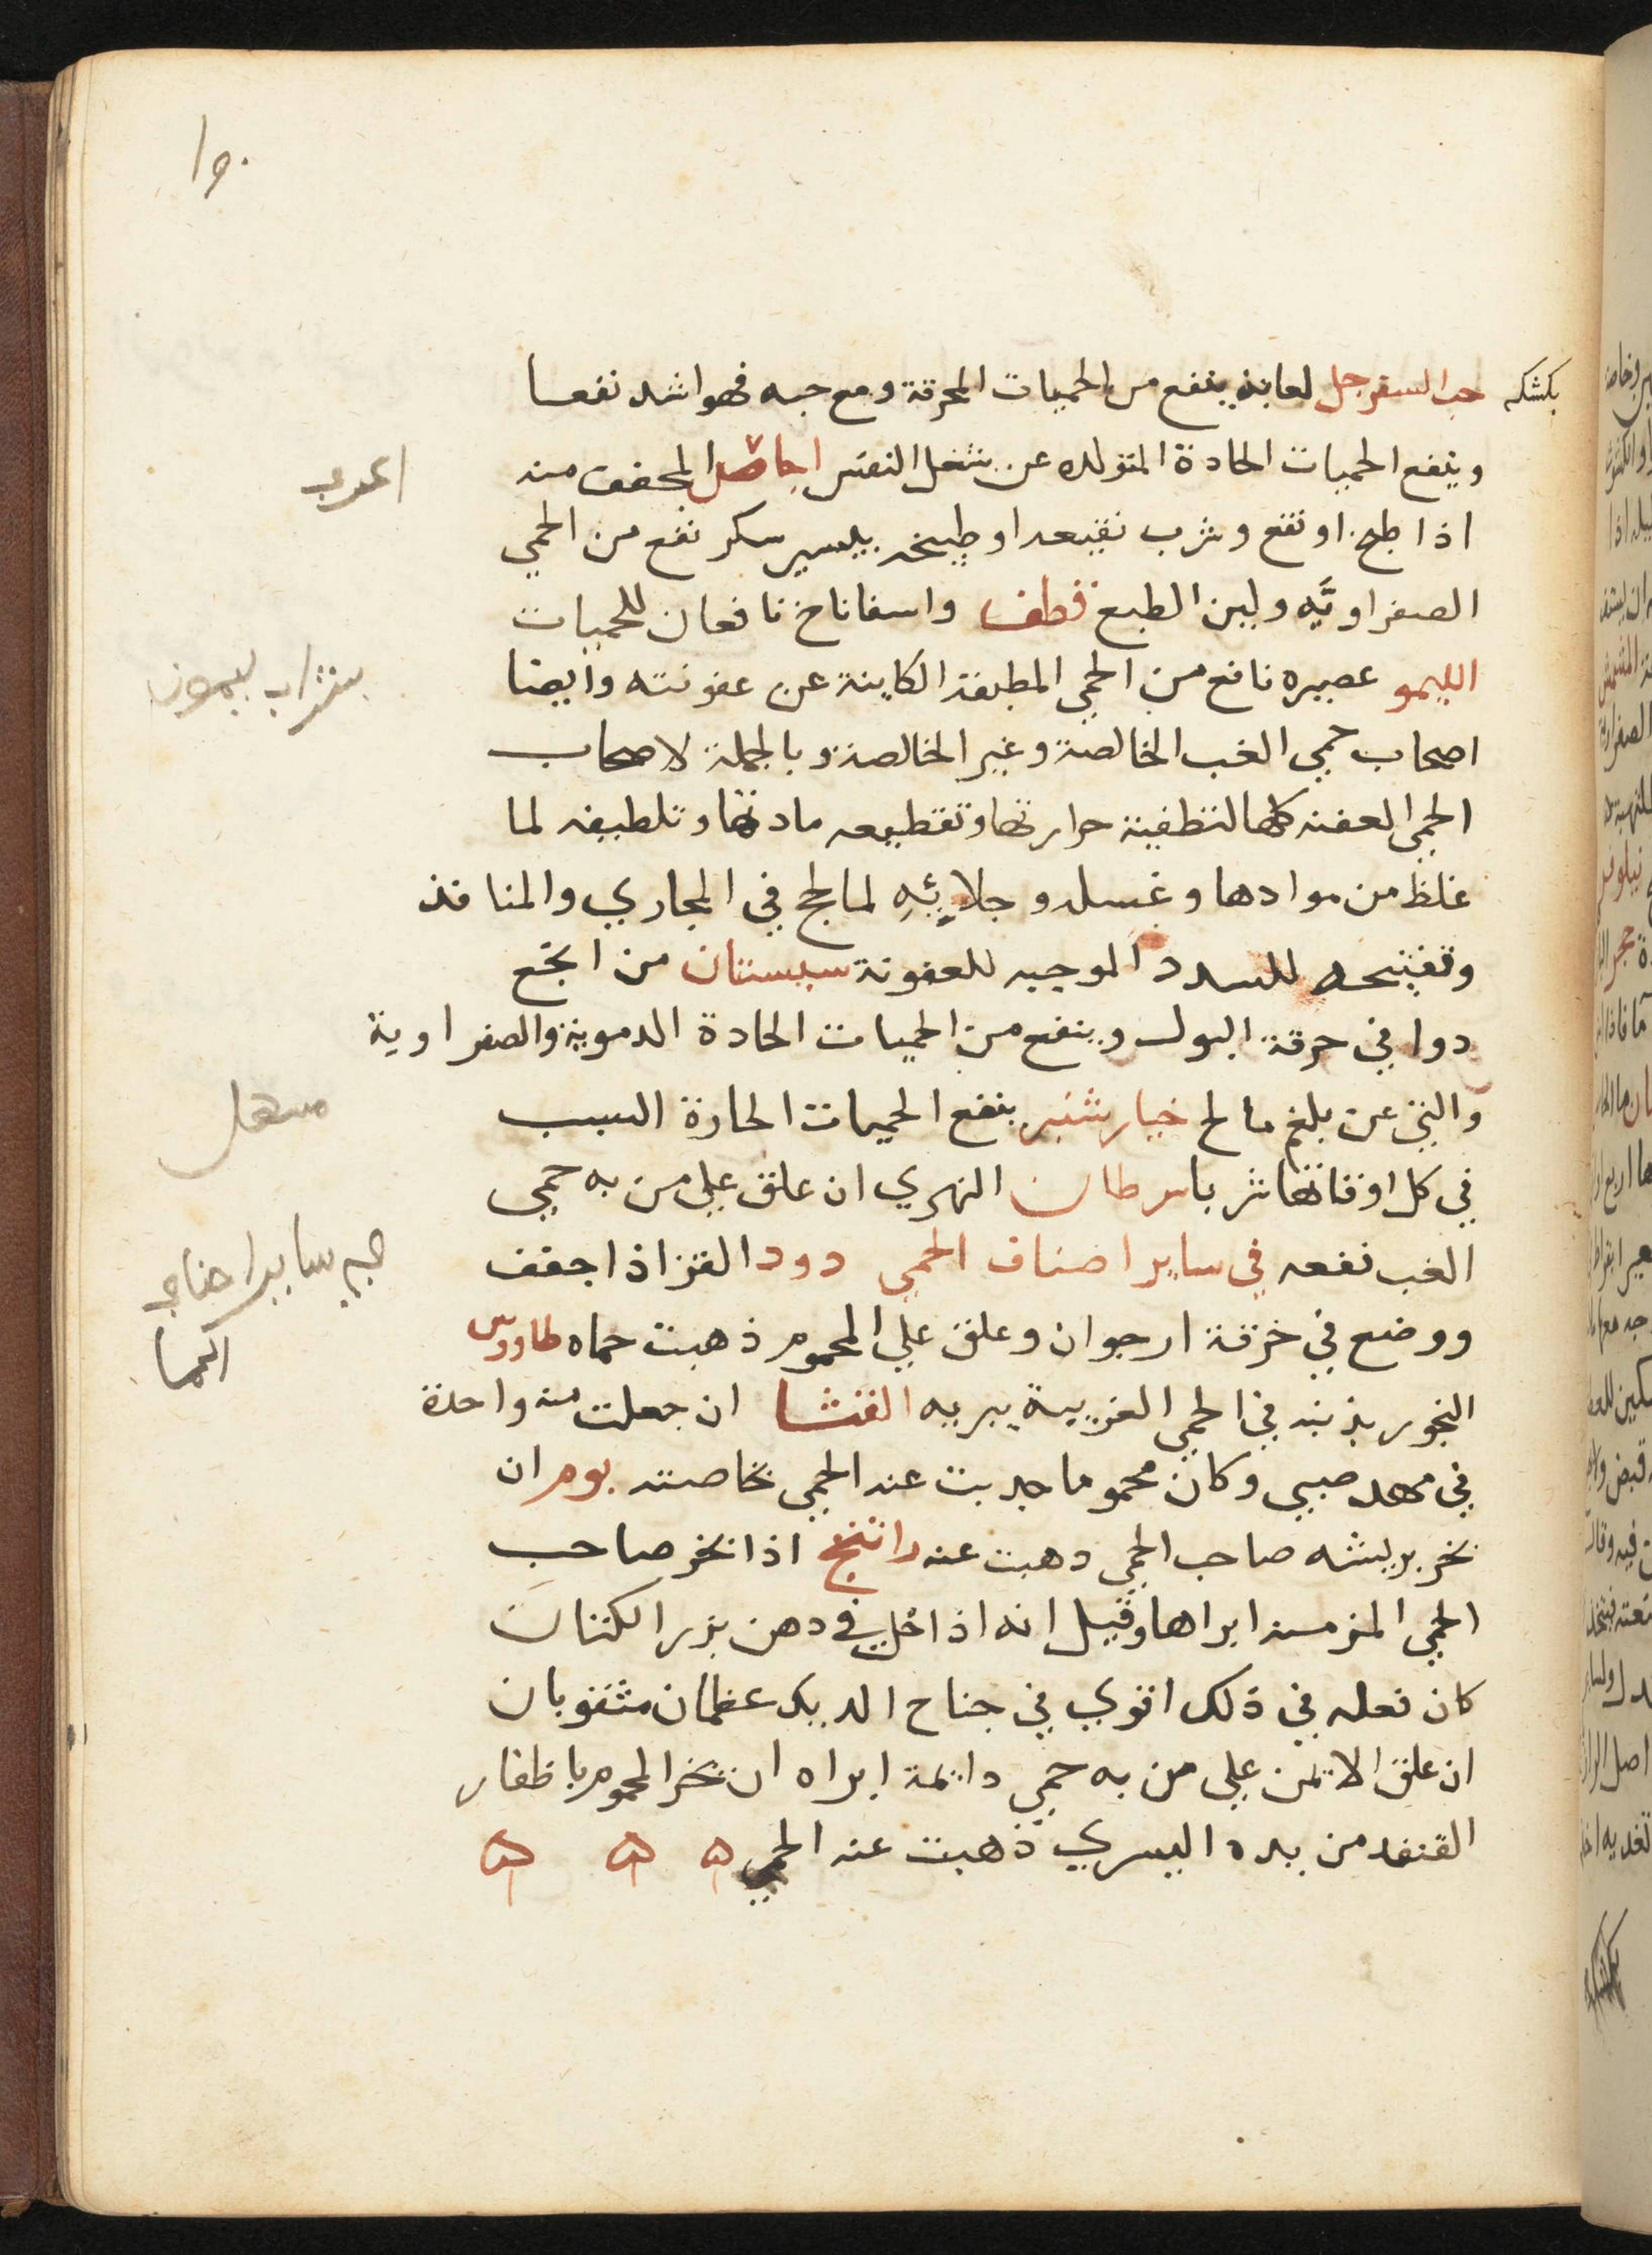 ١٥٠
بكشكه
حب السفرجل لعابه ينفع من الحميات المحرقة ومع حبه فهو اشد نفعا
وينفع الحميات الحادة المتولده عن اجاص المجفف منه
اذا طبخ او نقع وشرب نقيعه او طبيخه بيسير سكر نفع من الحمي
الصفراويّه ولين الطبع قطف واسفاناخ نافعان للحميات
الليمو عصيره نافع من الحمي المطبقة الكاينة عن عفونته وايضا
اصحاب حمي الغب الخالصة وغير الخالصة وبالجملة لاصحاب
الحمي العفنه كلها لتطفية حرارتها وتقطيعه مادتها وتلطيفه لما
غلظ من موادها وغسله وجلايئهِ لما لحج في المجاري والمنافذ
وتفتيحه للسدد الموجبه للعفونة سبستان من انجع
دوا في حرقة البول وينفع من الحميات الحادة الدموية والصفراوية
والتي عن بلغم مالح خيار شنبر ينفع الحميات الحارة السبب
في كل اوقاتها شربا سرطان النهري ان علق علي من به حمي
الغب نفعه في ساير اصناف الحمي دود القز اذا جفف
ووضع في خرقة ارجوان وعلق علي المحموم ذهبت حماه طاووس
البخور بذنبه في الحمي الغريبة يبريه القثا ان جعلت منه واحدة
في مهد صبي وكان محموما جدبت عنه الحمي بخاصته بوم ان
بخر بريشه صاحب الحمي دهبت عنه راتنج اذا بخر صاحب
الحمي المزمنه ابراها وقيل انه اذا حل في دهن بزر الكتان
كان فعله في ذلك اقوي في جناح الديك عظمان مثقوبان
ان علق الايمن علي من به حمي دايمة ابراه ان بخر المحموم باظفار
القنفد من يده اليسري ذهبت عنه الحمي ه ه ه
شراب ليمون
مسهل
ساير اصناف
الحما